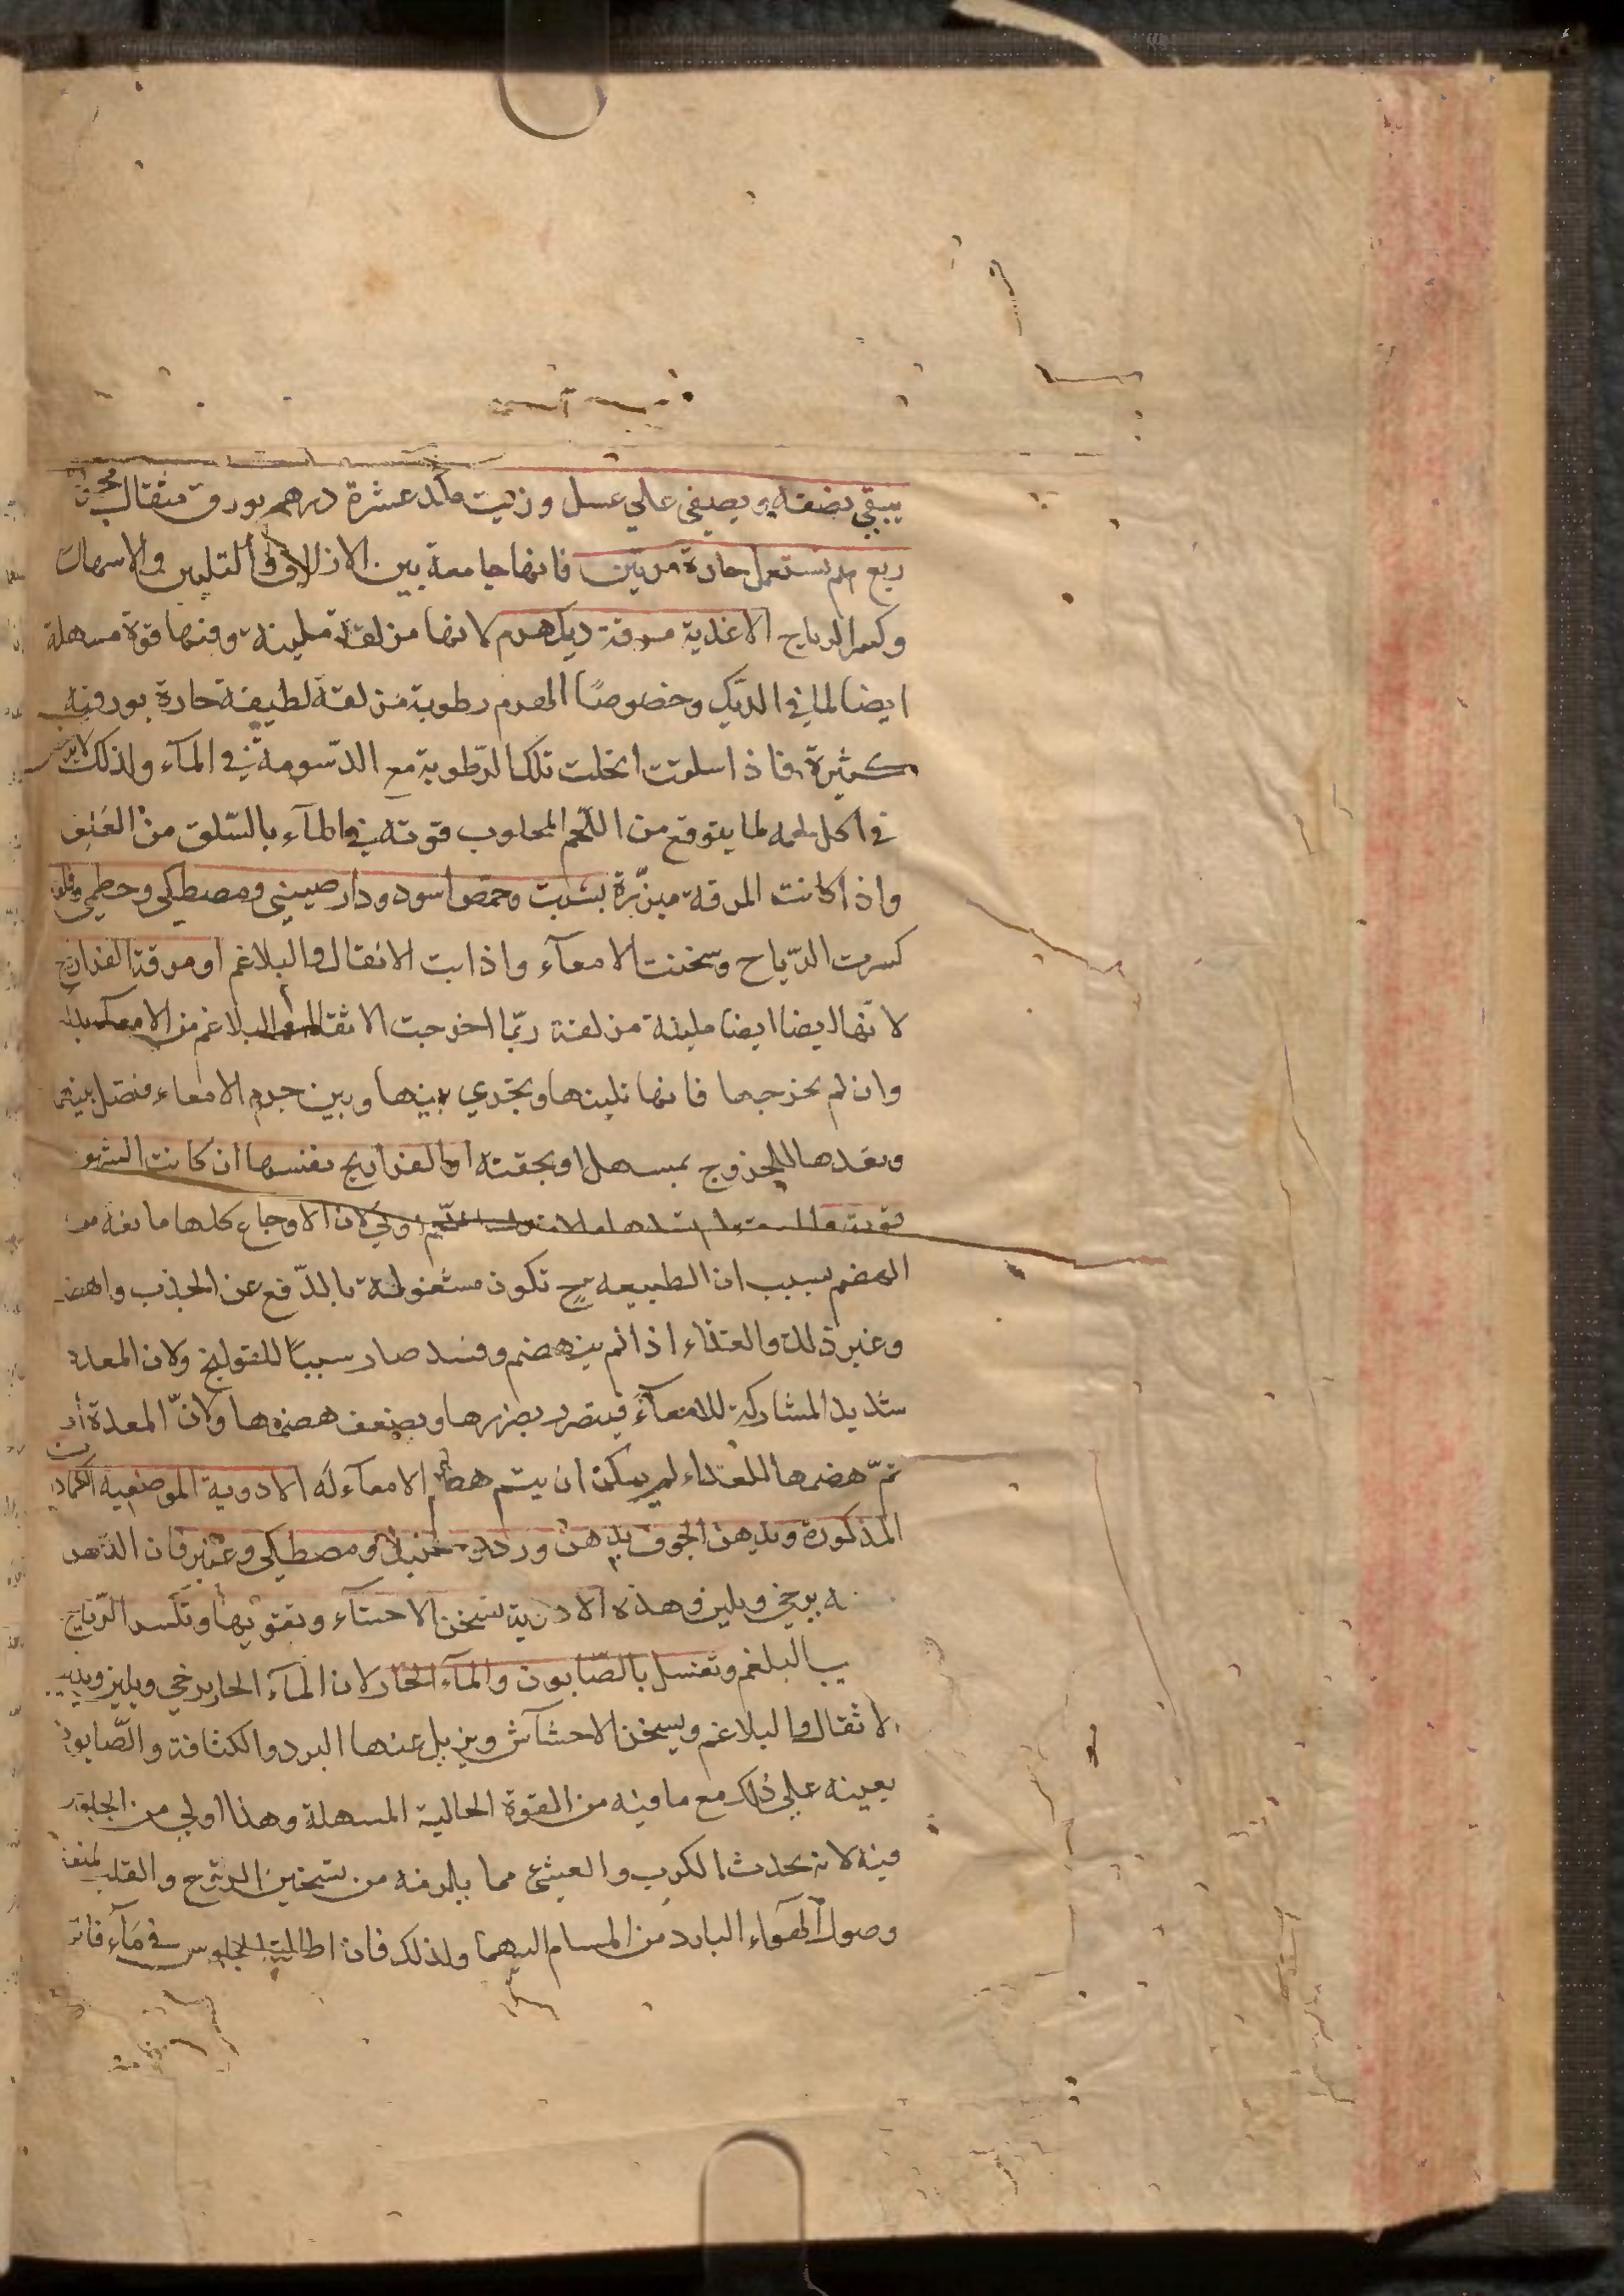 يبقي نصفه ويصفي علي عسل وزيت مكد عشرة دراهم بورق مثقال
ربع درهم تستعمل حارة مرتين فانها جامعة بين الازلاق والتليين والاسهال
وكسر الرياح الاغذية مرقة ديك هرم لانها مزلقة ملينة وفيها قوة مسهلة
ايضا لما في الديك وخصوصًا الهرم رطوبة مزلقة لطيفة حارة بورقية
كثيرة فاذا سلقت انحلت تلك الرّطوبة مع الدّسومة في المآء ولذلك
في اكل لحمه لما يتوقع من اللّحم المحلوب قوته في المآء بالسّلق من العنف
واذا كانت المرقة مبزّرة بشبت وحمص اسود ودارصيني ومصطكي
كسرت الرّياح وسخنت الامعآء واذابت الاثقال والبلاغم او مرقة الفراريج
لانّها ايضا ايضا ملينة مزلقة ربّما اخرجت الاثقال والبلاغم من الامعآء
وان لم يخرجها فانها تلينها وتجري بينها وبين جرم الامعاء
وبعدها للخروج بمسهل او بحقنة او الفراريج نفسها ان كانت الشهو
قوية اولي لان الاوجاع كلها مانعة من
الهضم بسبب ان الطبيعه ح تكون مشغولة بالدّفع عن الجذب والهضم
وغير ذلك والغذاء اذا لم ينهضم وفسد صار سببًا للقولنج ولان المعدة
شديد المشاركة للامعآء فيتضرر بضررها ويضعف هضمها ولانّ المعدة
تمّ هضمها للغذاء لم يمكن ان يتم هضم الامعآء له الادوية الموضعية
المذكورة ويدهن الجوف بدهن ورد ومصطكي وعنبر فان الدهن
يرخي ويلين وهذه الادوية تسخن الاحشآء وتقويها وتكسر الرّياح
البلغم وتغسل بالصّابون والمآء الحار لان المآء الحار يرخي ويلين
الاثقال والبلاغم ويسخن الاحشآش ويزيل عنها البرد والكثافة والصّابون
يعينه علي ذلك مع ما فيه من القوة الجالية المسهلة وهذا اولي من الجلوس
فيه لانه يحدث الكرب والغشي مما يلزمه من تسخين الروح والقلب
وصول الهوآء البارد من المسام اليهما ولذلك فان اطالة الجلوس في مآء فاتر